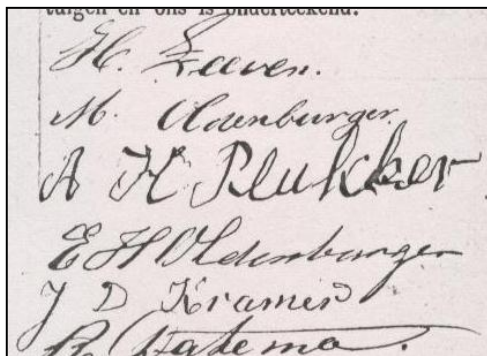 tuigen en ons is onderteekend.
H. Leeven.
M. Oldenburger.
A H Plukker
E H Oldenburger
J D Kramer
R